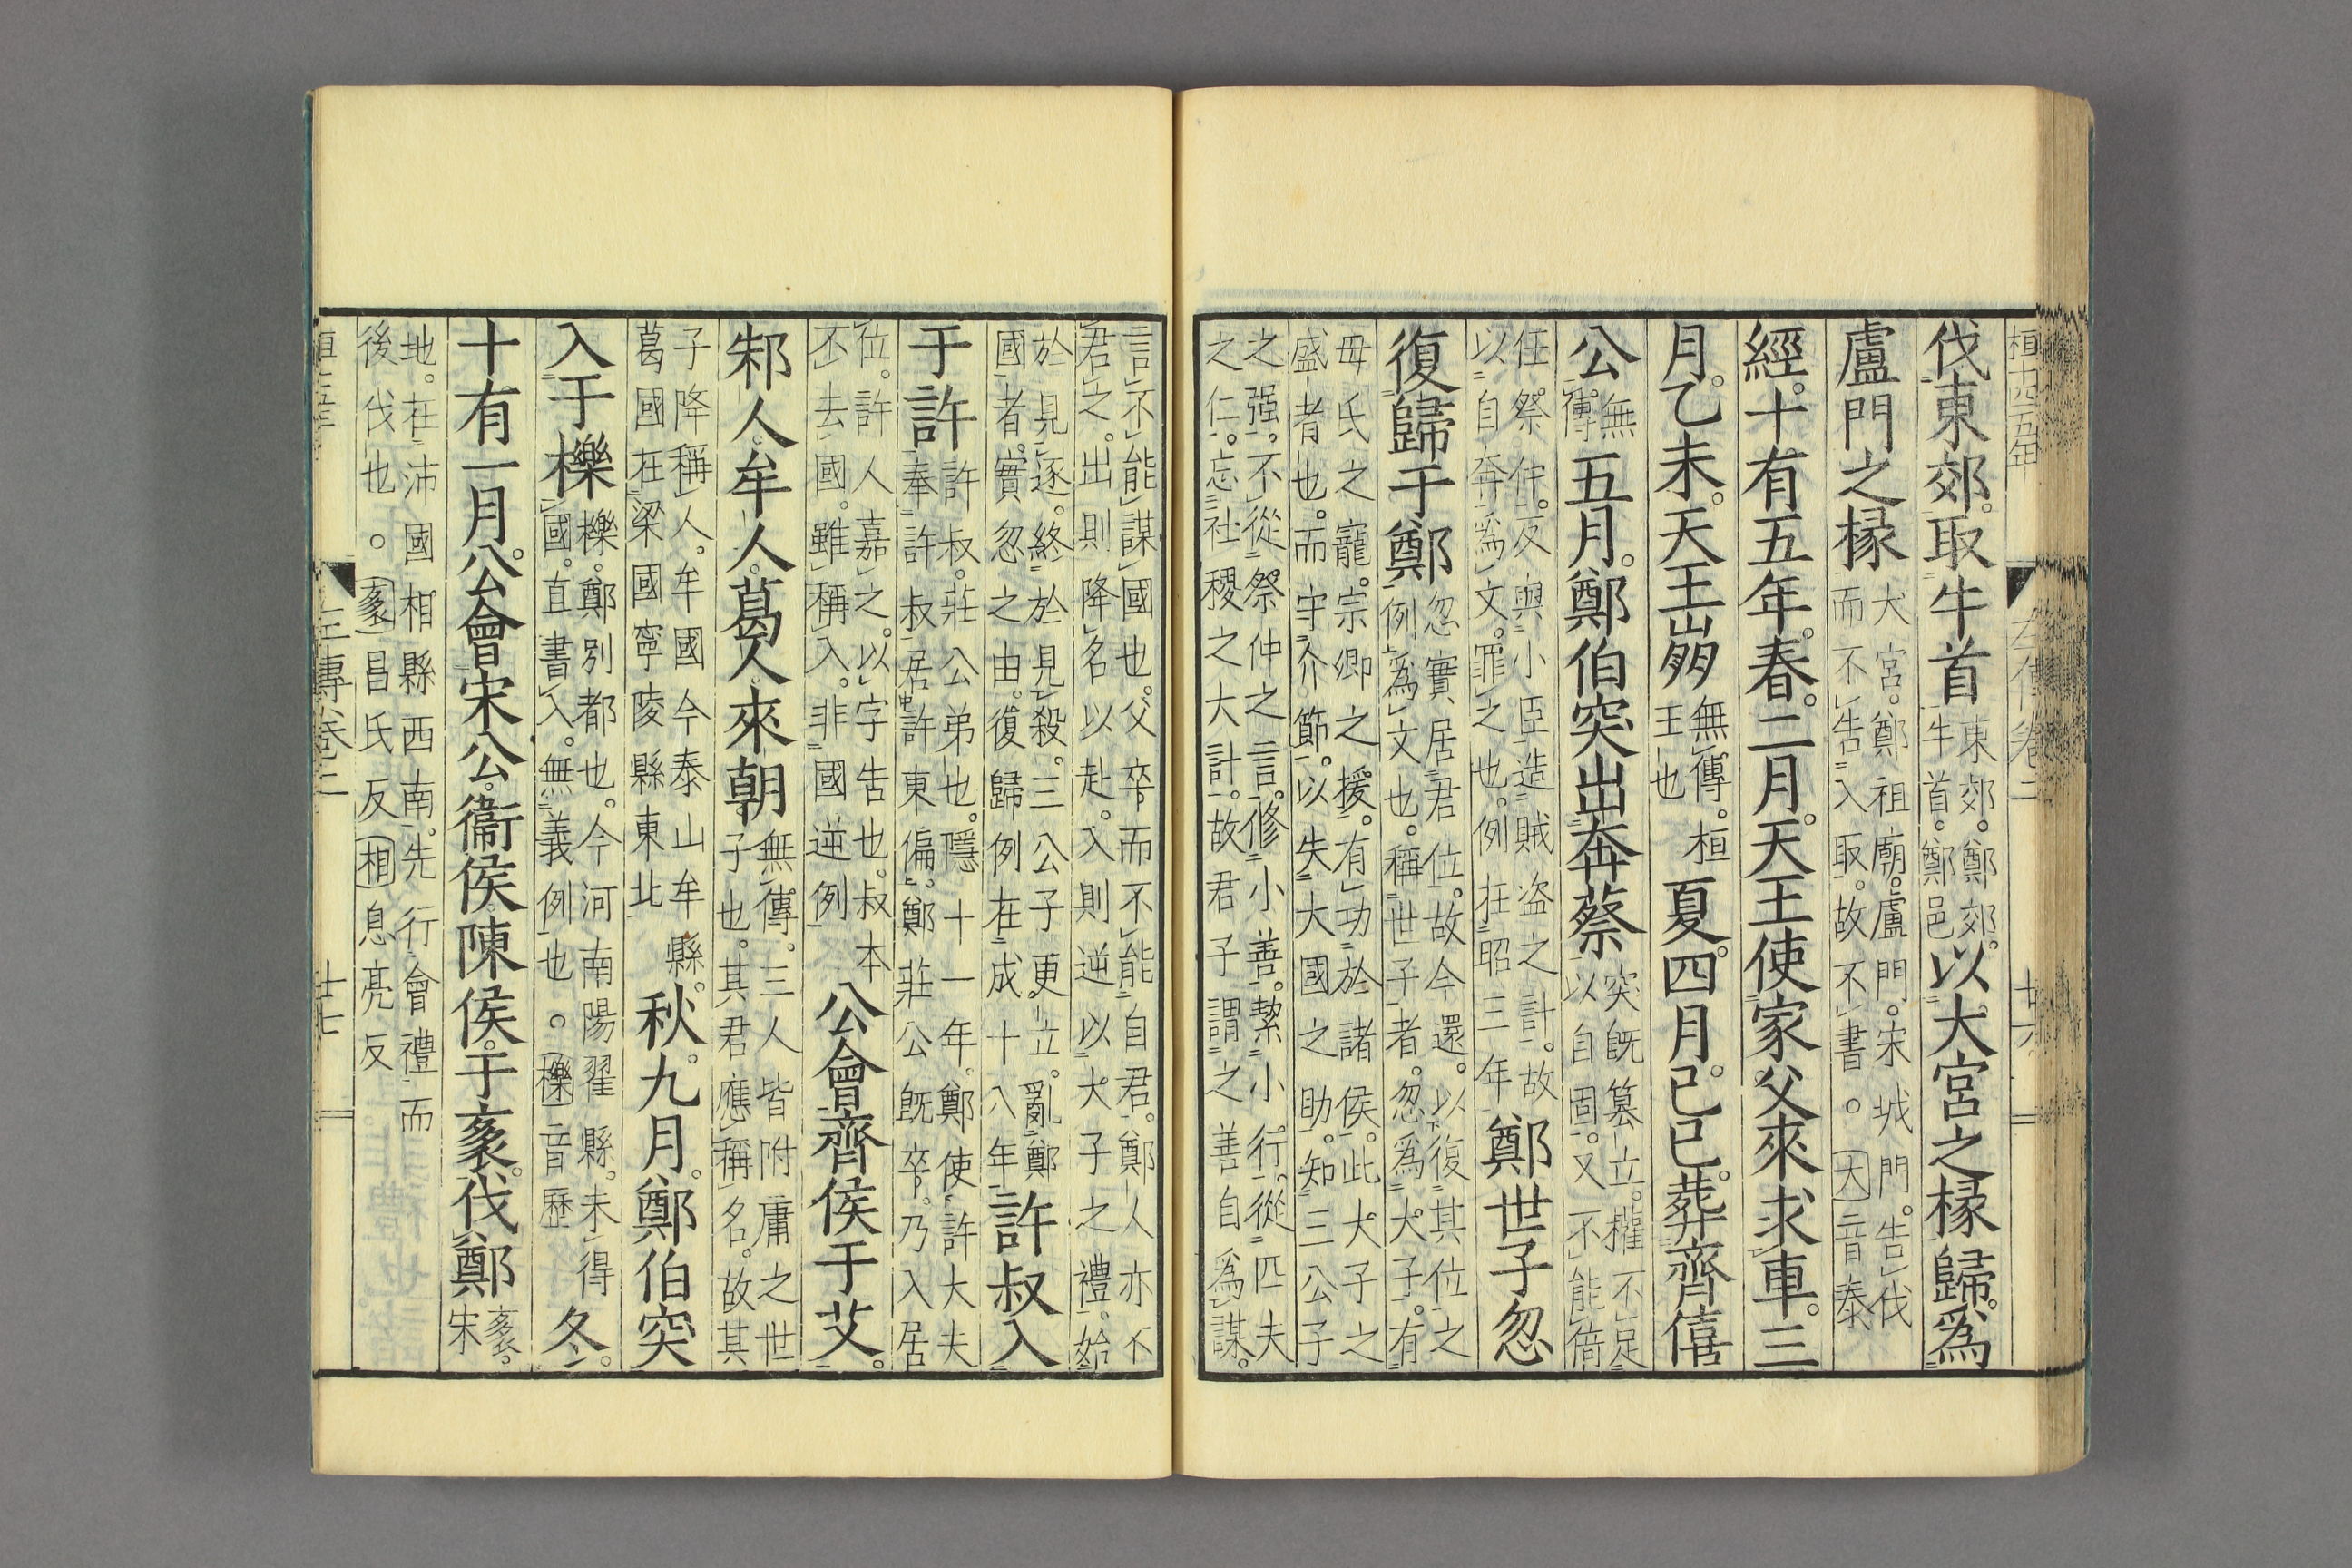 桓十四五年 左傳卷二 廿六
伐東郊。取牛首東郊。鄭郊。牛首。鄭邑。以大宮之椽歸。爲
盧門之椽大宮。鄭祖廟。盧門。宋城門。告伐而不告入取。故不書。○大音泰
經。十有五年。春。二月。天王使家父來求車。三
月。乙未。天王崩無傳。桓王也夏。四月。己巳。葬齊僖
公。無傳五月。鄭伯突出奔蔡突既簒立。權不足以自固。又不能倚
任祭仲。反與小臣造賊盗之計。故以自奔爲文。罪之也。例在昭三年鄭世子忽
復歸于鄭忽實居君位。故今還。以復其位之例爲文也。稱世子者。忽爲大子。有
母氏之寵。宗卿之援。有功於諸侯。此大子之盛者也。而守介節。以失大國之助。知三公子
之强。不從祭仲之言。修小善。絜小行。從匹夫之仁。忘社稷之大計。故君子謂之善自爲謀。
言不能謀國也。父卒而不能自君。鄭人亦不君之。出則降名以赴。入則逆以大子之禮。始
於見逐。終於見殺。三公子更立。亂鄭國者。實忽之由。復歸例在成十八年許叔入
于許許叔。莊公弟也。隱十一年。鄭使許大夫奉許叔居許東偏。鄭莊公既卒。乃入居
位。許人嘉之。以字告也。叔本不去國。雖稱入。非國逆例公會齊侯于艾。
邾人。牟人。葛人來朝無傳。三人皆附庸之世子也。其君應稱名。故其
子降稱人。牟國今泰山牟縣。葛國在梁國寧陵縣東北秋。九月。鄭伯突
入于櫟櫟。鄭別都也。今河南陽翟縣。未得國。直書入。無義例也。○櫟音歷冬。
十有一月。公會宋公。衞侯。陳侯。于袲。伐鄭袲。宋
地。在沛國相縣西南。先行會禮而後伐也。○袲昌氏反相息亮反
左傳卷二 廿七